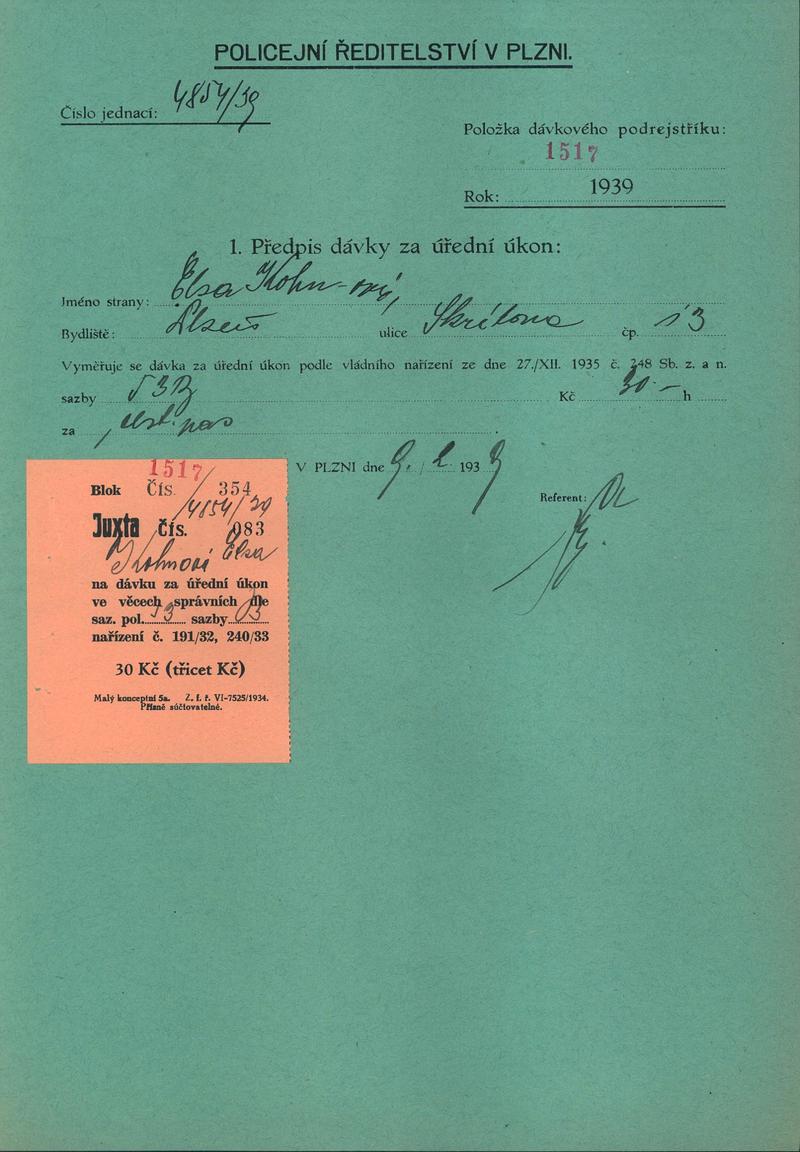 POLICEJNÍ ŘEDITELSTVÍ V PLZNI.
Číslo jednací: 4854/39
Položka dávkového podrejstříku:
1517
Rok: 1939
1. Předpis dávky za úřední úkon:
Jméno strany: Elsa Kohn-ová,
Bydliště: Plzeň ulice Skrétova čp. 13
Vyměřuje se dávka za úřední úkon podle vládního nařízení ze dne 27./XII. 1935 č. 248 Sb. z. a n.
sazby 53B Kč 30.— h
za cest. pas
V PLZNI dne 9. / 2. 1939
Referent:
1517
Blok Čís. 354
4854/39
Juxta čís. 083
Kohnová Elsa
na dávku za úřední úkon
ve věcech správních dle
saz. pol. 53 sazby B
nařízení č. 191/32, 240/33
30 Kč (třicet Kč)
Malý konceptní 5a. Z. f. ř. VI-7525/1934.
Přísně súčtovatelné.